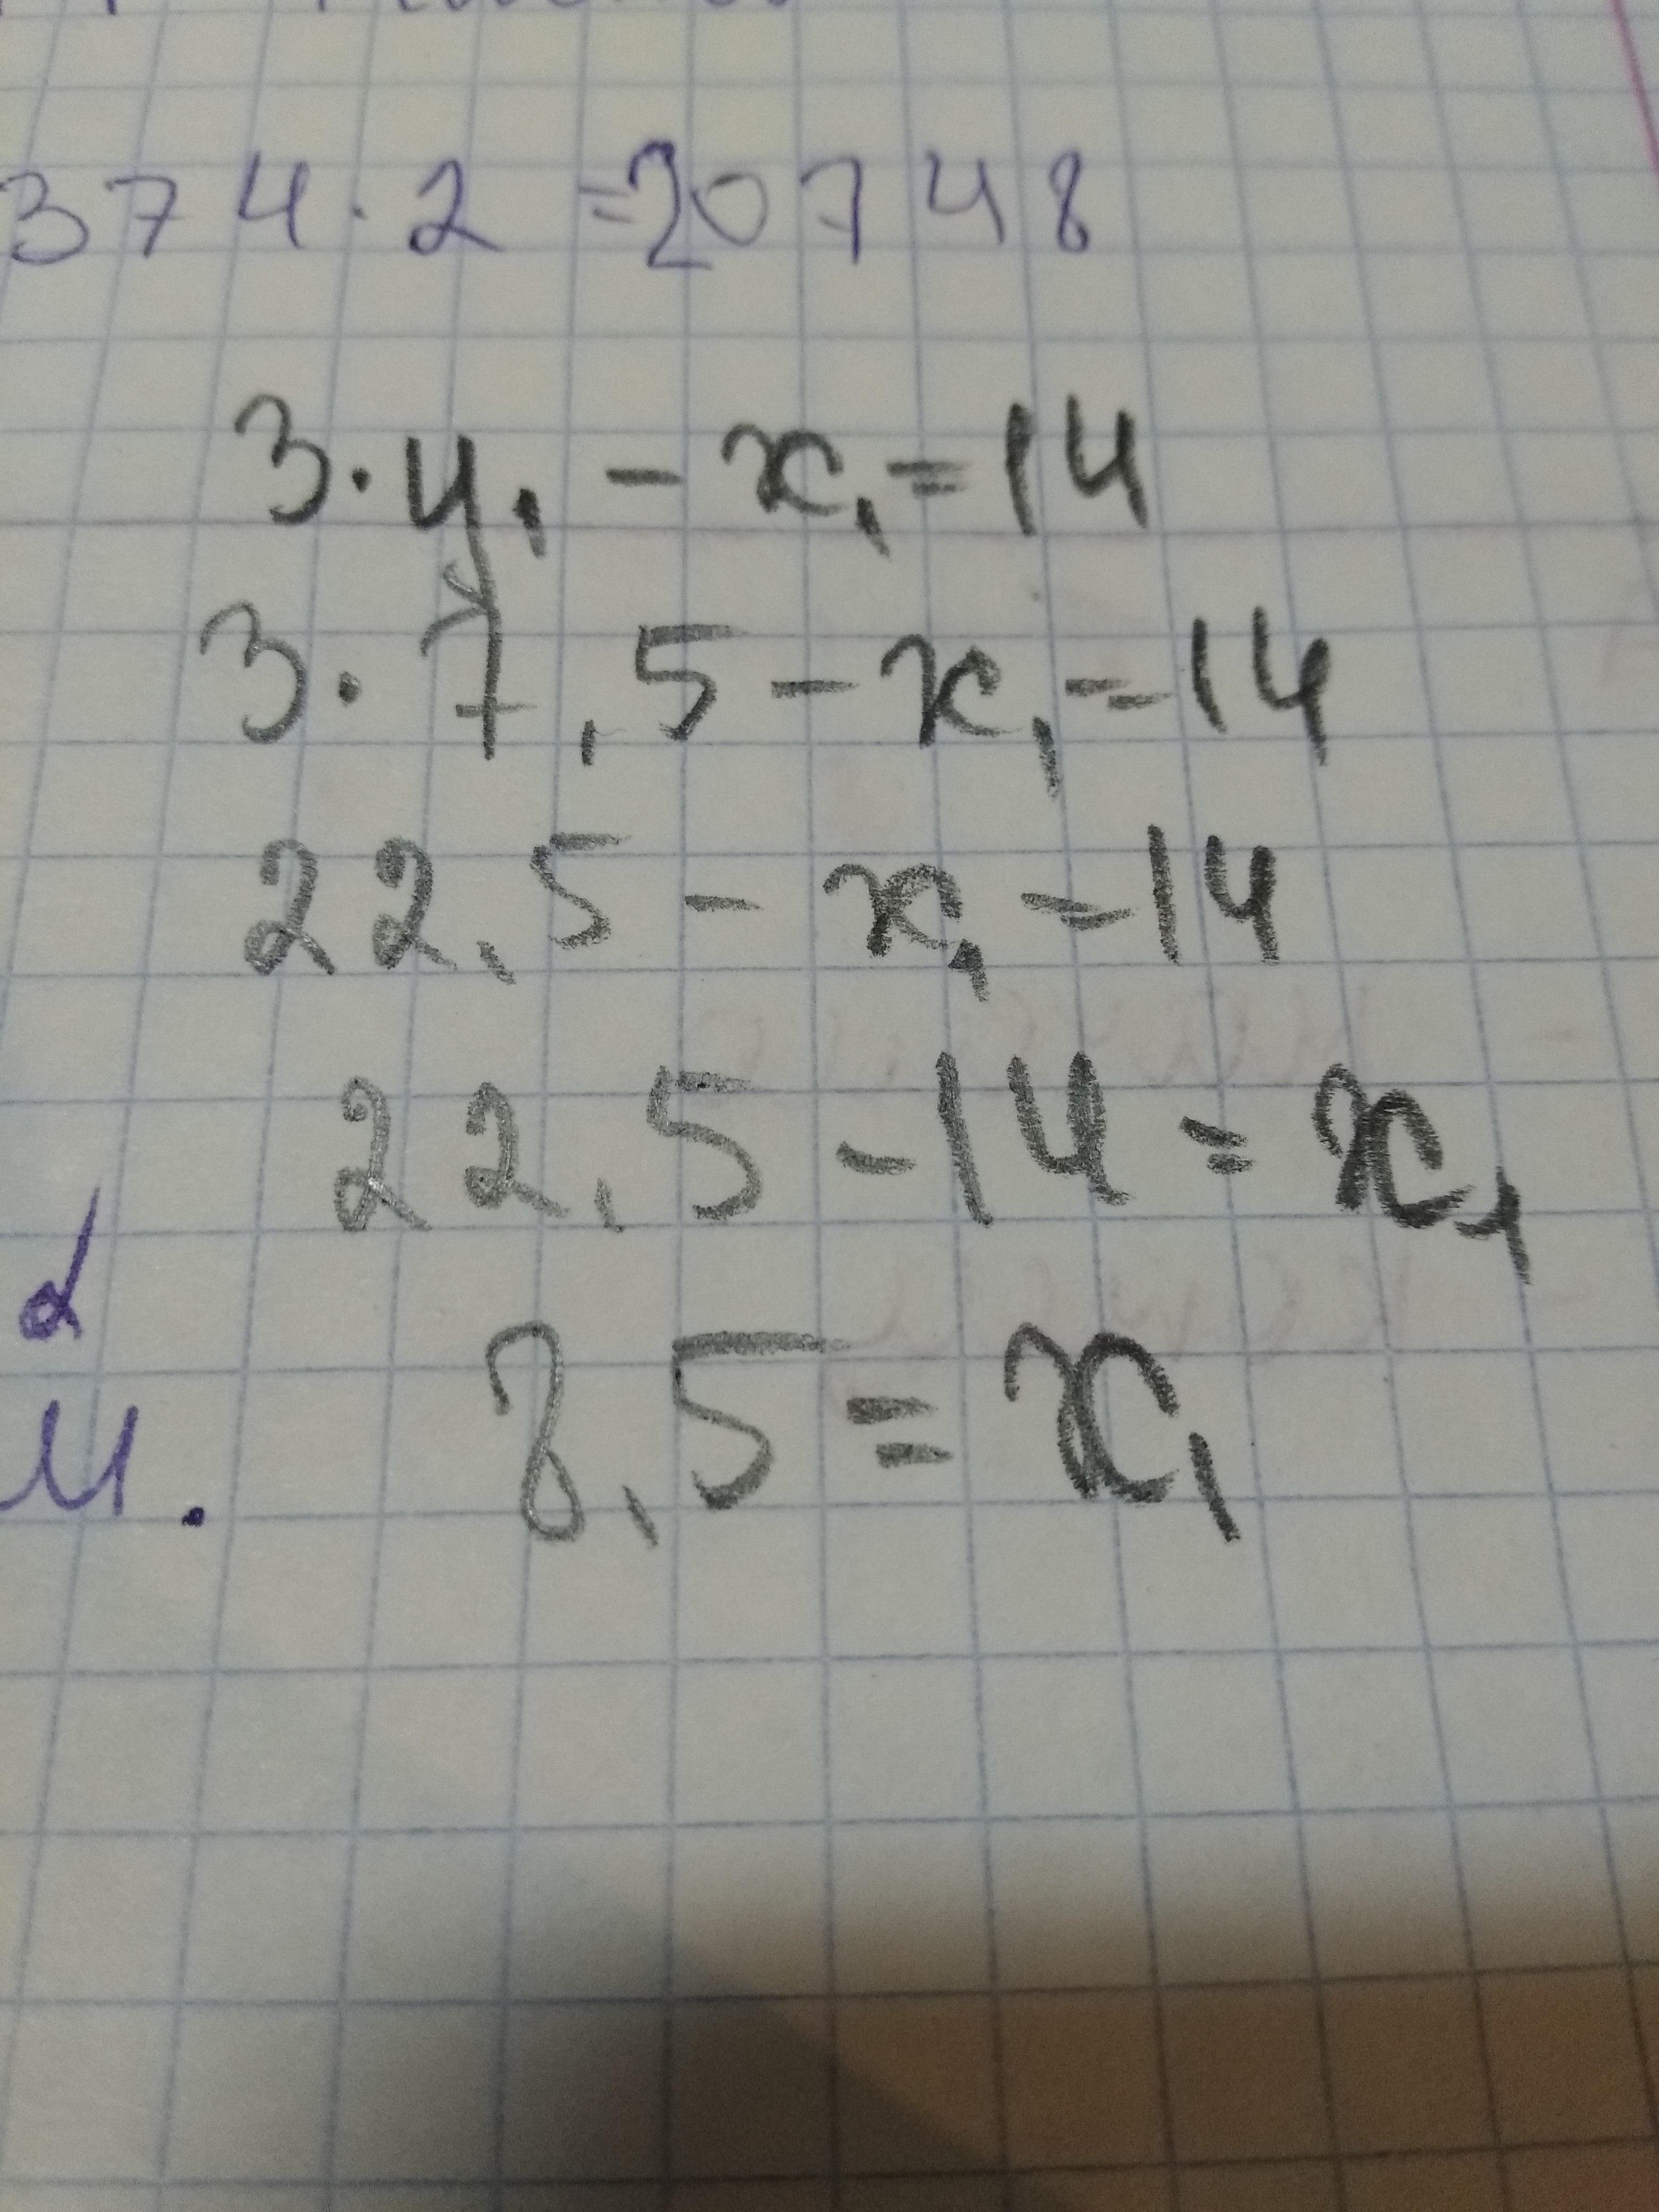 374·2=20748
3·y₁-x₁=14
3·7,5-x₁=14
22,5-x₁=14
22,5-14=x₁
d
8,5=x₁
и.